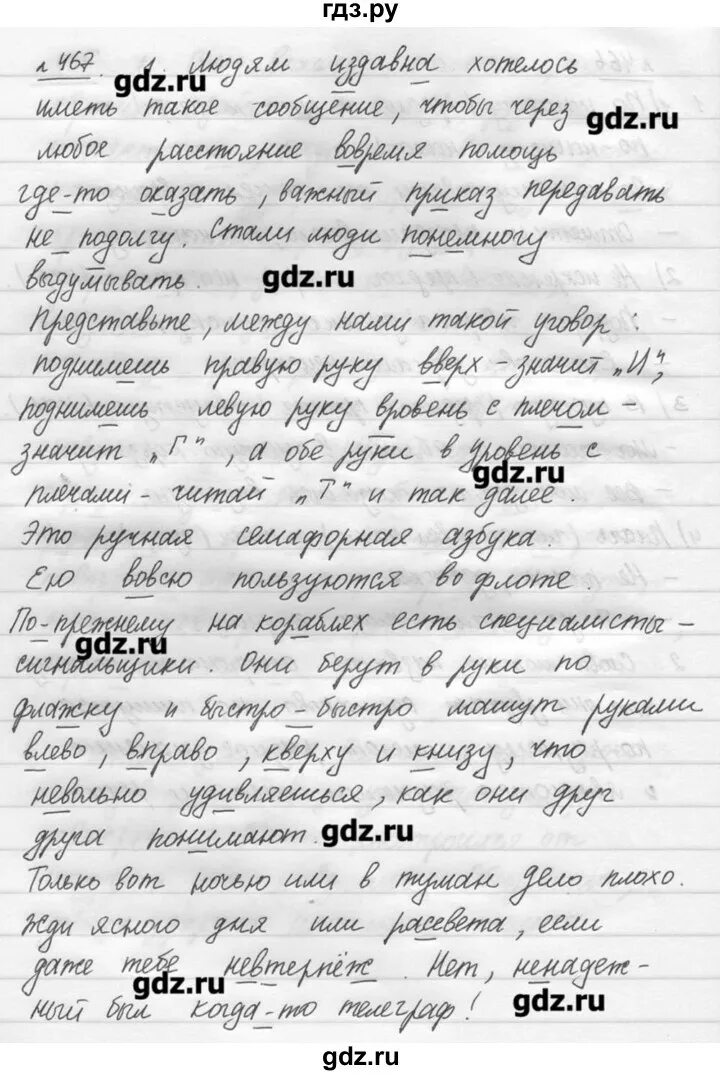 гдз.ру
№467. 1. Людям издавна хотелось
gdz.ru
иметь такое сообщение, чтобы через
gdz.ru
любое расстояние вовремя помощь
где-то оказать, важный приказ передавать
не подолгу. Стали люди понемногу
выдумывать.
gdz.ru
Представьте, между нами такой уговор:
поднимешь правую руку вверх - значит „И",
поднимешь левую руку вровень с плечом -
значит „Г", а обе руки в уровень с
gdz.ru
плечами - читай „Т" и так далее.
Это ручная семафорная азбука.
Ею вовсю пользуются во флоте.
По-прежнему на кораблях есть специалисты -
gdz.ru
сигнальщики. Они берут в руки по
флажку и быстро-быстро машут руками
влево, вправо, кверху и книзу, что
невольно удивляешься, как они друг
друга понимают.
gdz.ru
Только вот ночью или в туман дело плохо.
Жди ясного дня или рассвета, если
даже тебе невтерпёж. Нет, ненадеж-
gdz.ru
ный был когда-то телеграф!
gdz.ru
gdz.ru